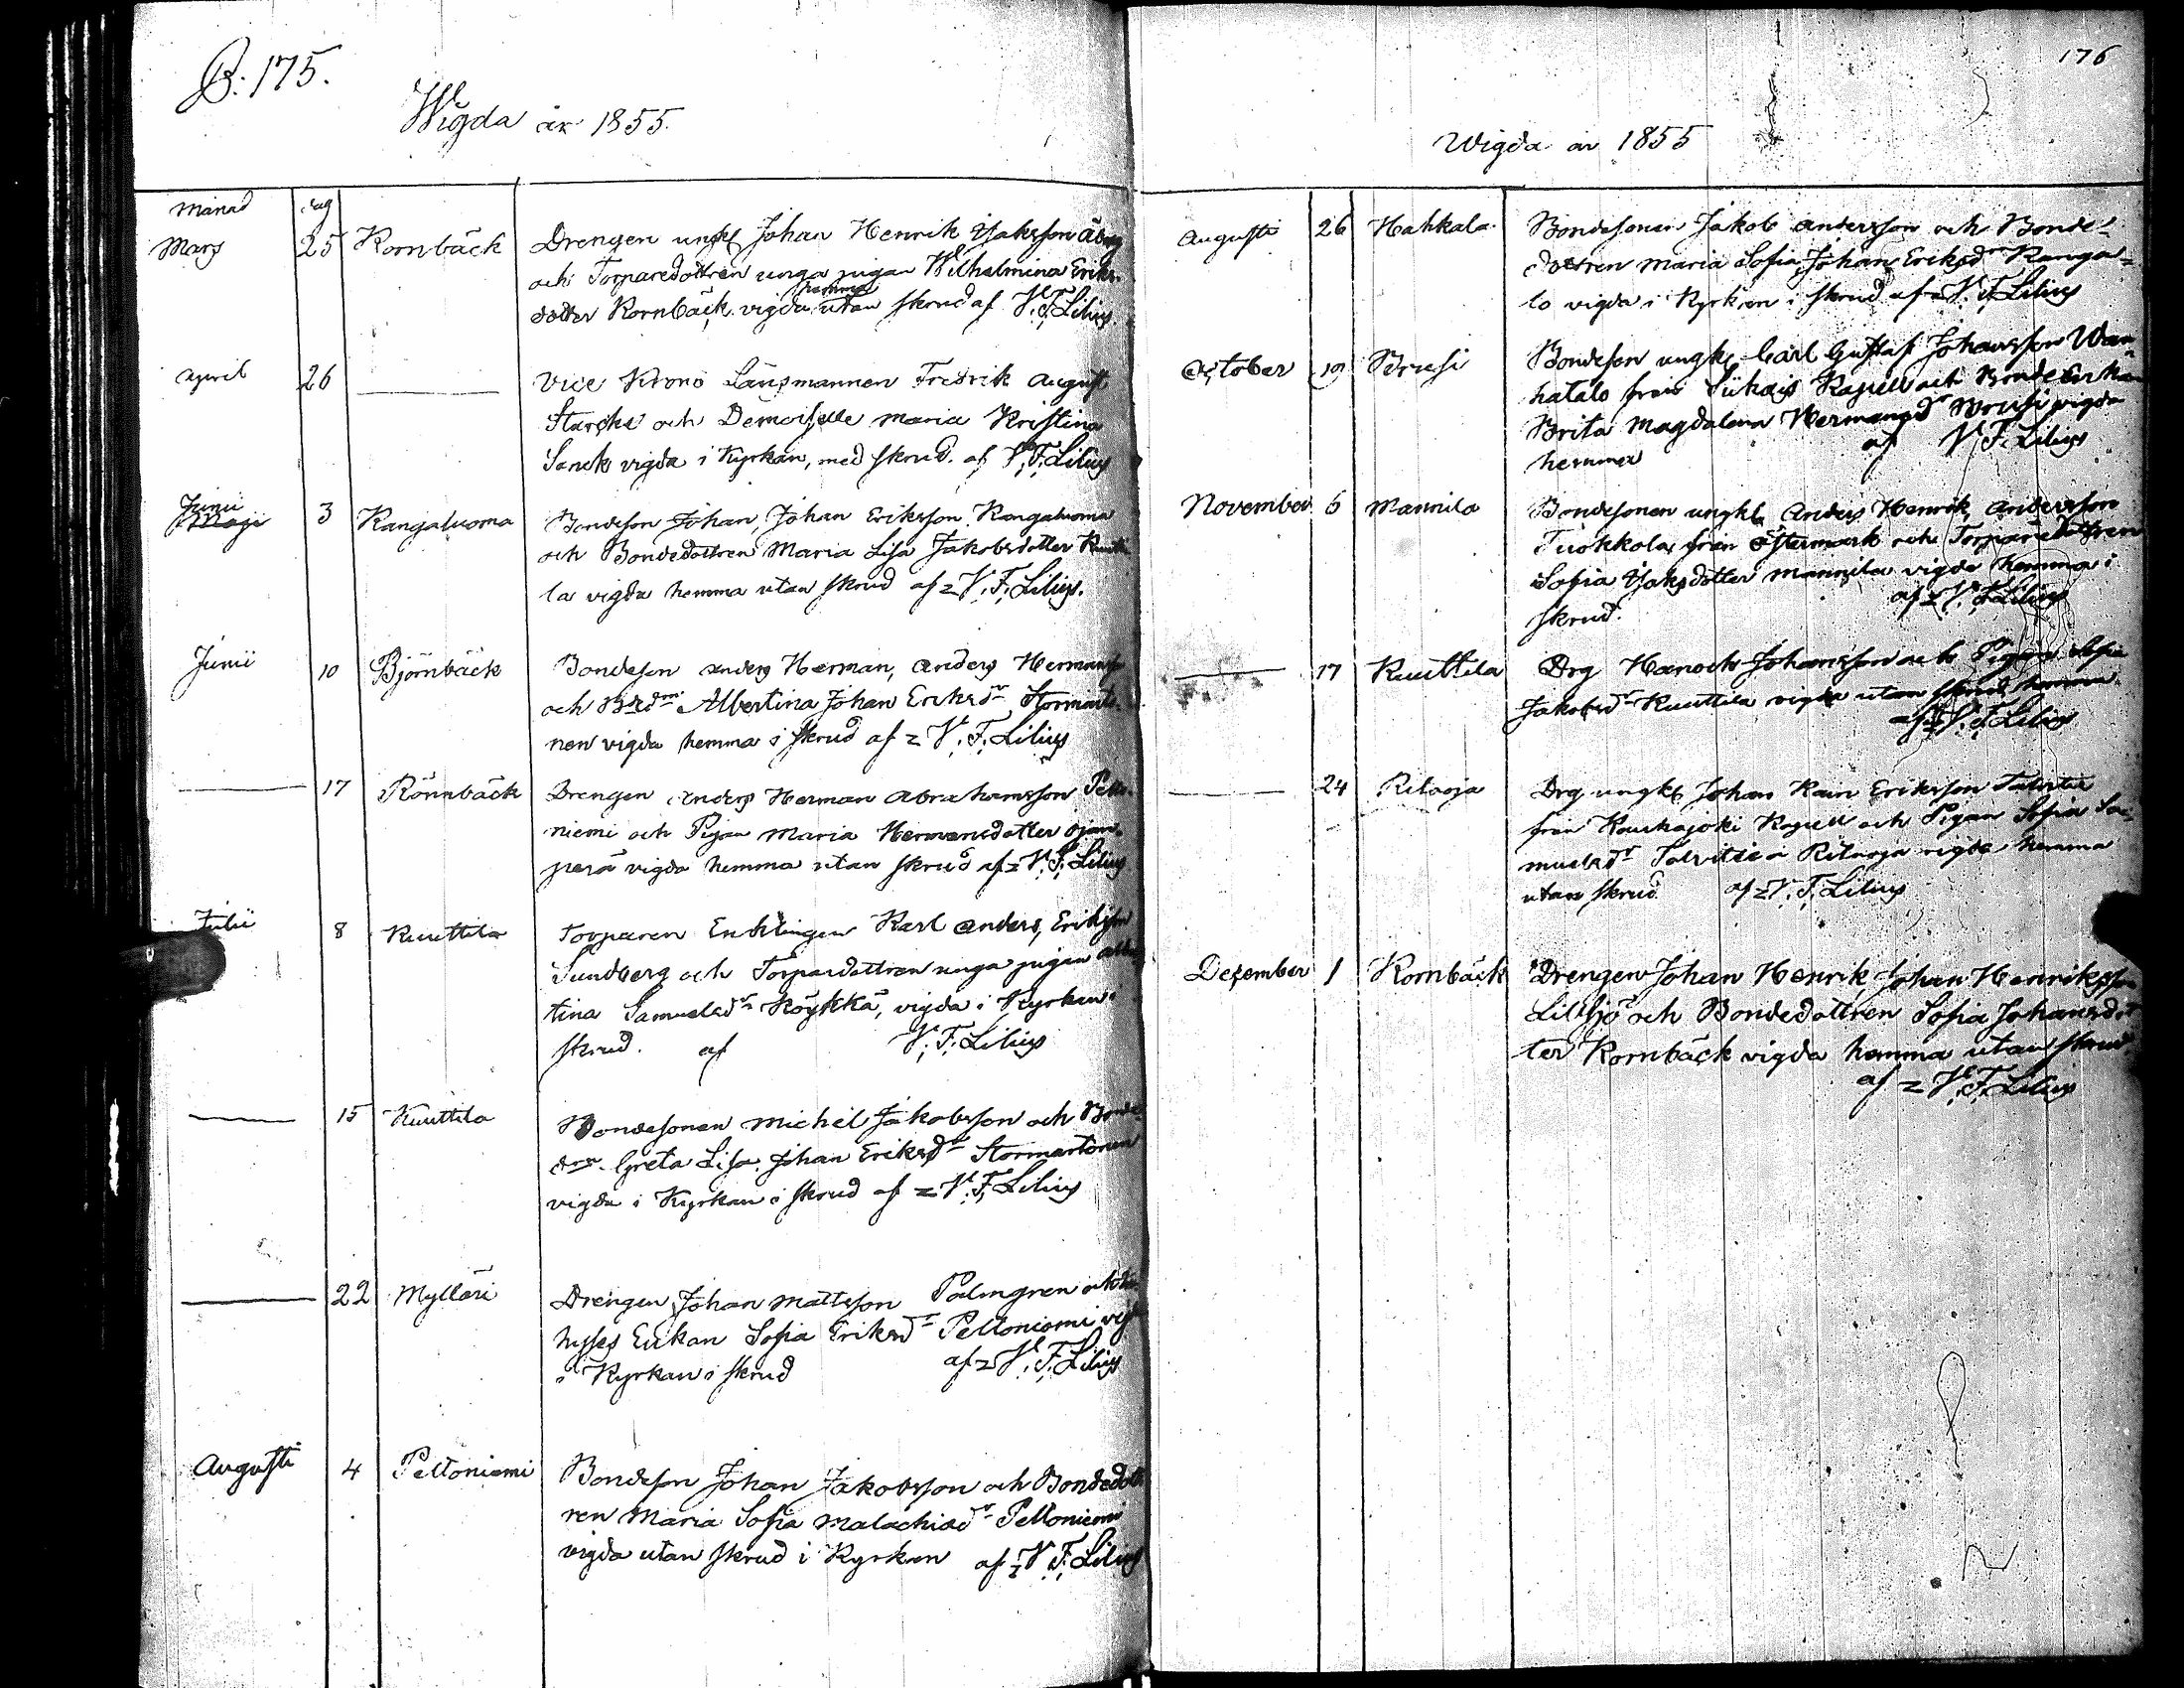 P: 175.
Wigda år 1855.
Månad dag
Mars 25 Kornbäck Drengen ungk Johan Henrik Isaksson Åberg
och Torparedottren unga pigan Wilhelmina Eriks-
hemma
dotter Kornbäck vigda utan skrud af V. F. Lilius.
April 26 Vice Krono Länsmannen Fredrik August
Starcke och Demoiselle Maria Kristina
Sanck vigda i Kyrkan, med skrud. af V. F. Lilius
Junii
Maji 3 Kangaluoma Bondeson Johan, Johan Eriksson Kangaluoma
och Bondedottren Maria Lisa Jakobsdotter Kuutti
la vigda hemma utan skrud af V. F. Lilius.
Junii 10 Björnbäck Bondeson Anders Herman, Anders Hermansson
och Bdedrn Albertina Johan Eriksdr Stormarto-
nen vigda hemma i skrud af V. F. Lilius
17 Rönnbäck Drengen Anders Herman Abrahamsson Pelto-
niemi och Pigan Maria Hermansdotter Ojan-
perä vigda hemma utan skrud af V. F. Lilius
Julii 8 Kuuttila Torparen Enklingen Karl Anders, Eriksson
Sundberg och Torpardottren unga pigan Alber
tina Samuelsdr Röykkä, vigda i Kyrkan i
skrud. af V. F. Lilius
15 Kuuttila Bondesonen Michel Jakobsson och Bonde
drn. Greta Lisa Johan Eriksdr Stormartonen
vigda i Kyrkan i skrud af V. F. Lilius
22 Mylläri Drengen Johan Mattsson Palmgren och
hyses Enkan Sofia Eriksdr Peltoniemi vigda
i Kyrkan i skrud af V. F. Lilius
Augusti 4 Peltoniemi Bondeson Johan Jakobsson och Bondedott
ren Maria Sofia Malachisdr Peltoniemi
vigda utan skrud i Kyrkan af V. F. Lilius
176
Wigda år 1855
Augusti 26 Hahkala Bondesonen Jakob Andersson och Bonde-
dottren Maria Sofia Johan Eriksdr Kanga-
lo vigda i Kyrkan i skrud af V. F. Lilius
October 19 Bruusi Bondeson ungk. Carl Gustaf Johansson Wan
hatalo från Sickais Kapell och Bonde Enkan
Brita Magdalena Hermansdr Bruusi vigda
hemma af V. F. Lilius
November 6 Mannila Bondesonen ungkl Anders Henrik Andersson
Tuokkola från Östermark och Torparedottren
Sofia Isaksdotter Mannila vigda hemma i
skrud. af V. F. Lilius
17 Kuuttila Drg Hanock Johansson och Pigan
Jakobsdr Kuuttila vigda utan skrud hemma
af V. F. Lilius
24 Ritaoja Drg ungk Johan Kain Eriksson Talvitie
från Kauhajoki Kapell och Pigan Sofia Sa-
muelsdr Talvitie å Ritaoja vigda hemma
utan skrud af V. F. Lilius
December 1 Kornbäck Drengen Johan Henrik Johan Henriksson
Lillsjö och Bondedottren Sofia Johansdot
ter Kornbäck vigda hemma utan skrud
af V. F. Lilius